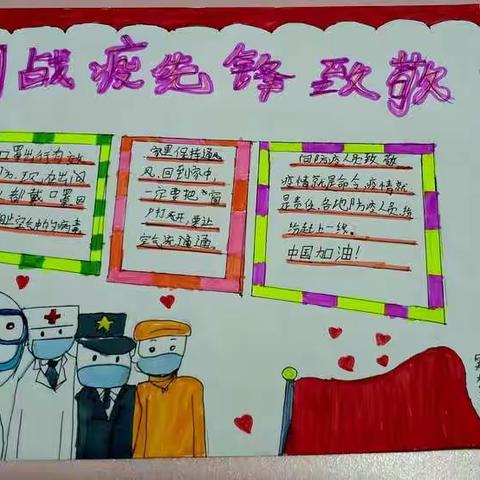 战疫先锋致敬
口罩出行为效
戴口罩因
空气中的病毒
家里保持通
风，回到家中，
一定要把“窗
户打开，要让
空气流通
向防疫人员致敬
疫情就是命令，疫情就
是责任，各地防疫人员，纷
纷赶上一线。
中国加油！